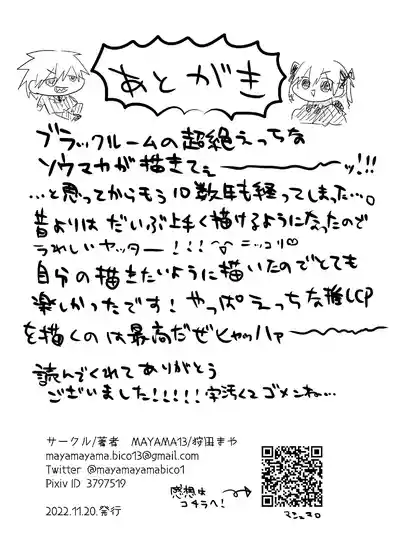 あとがき
ブラックルームの超絶えっちな
ソウマカが描きてぇーーーッ!!!
…と思ってからもう10数年も経ってしまった…。
昔よりは だいぶ上手く描けるようになったので
うれしいヤッター!!! ニッコリ♡
自分の描きたいように描いたのでとても
楽しかったです! やっぱえっちな推しCP
を描くのは最高だぜヒャッハァーーー
読んでくれてありがとう
ございました!!!!! 字汚くてゴメンね…
サークル/著者 MAYAMA13/狩田まや
mayamayama.bico13@gmail.com
Twitter @mayamayamabico1
Pixiv ID 3797519
2022.11.20.発行
感想は
コチラへ!
マシュマロ